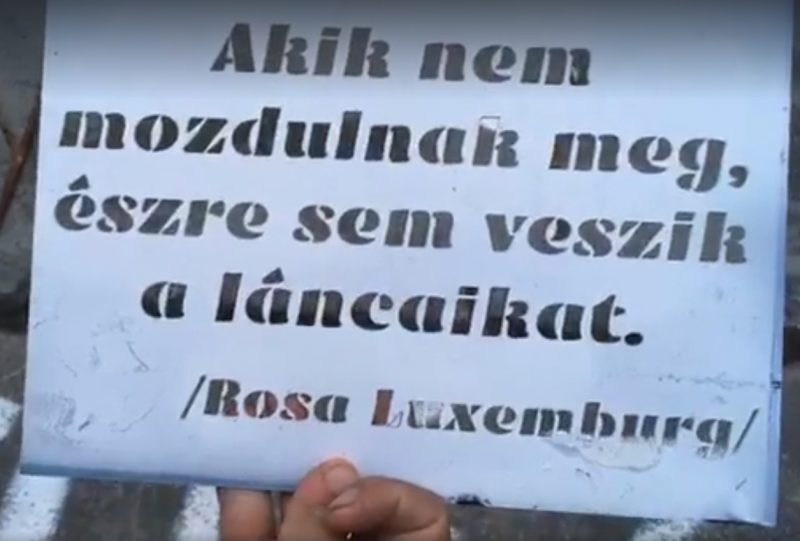 Akik nem
mozdulnak meg,
észre sem veszik
a láncaikat.
/Rosa Luxemburg/